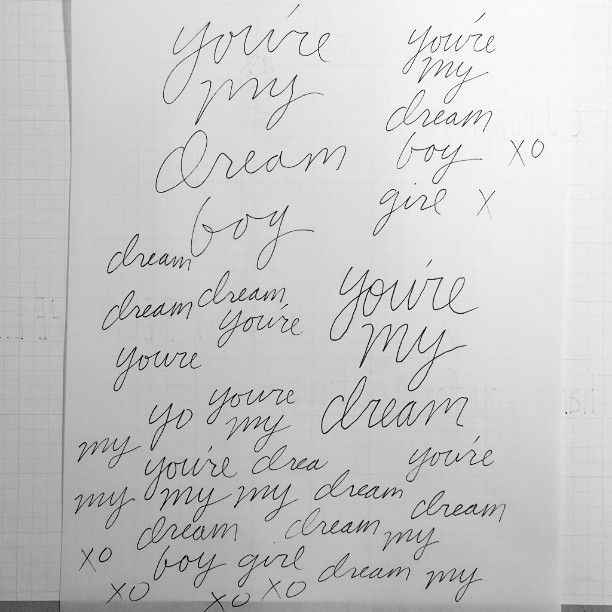 you're
my
dream
boy
you're
my
dream
boy xo
girl x
dream
dream dream
you're
youre
you're
my
dream
yo youre
my my
you're drea you're
my my my dream dream
dream dream my
xo boy girl dream my
xo xo xo